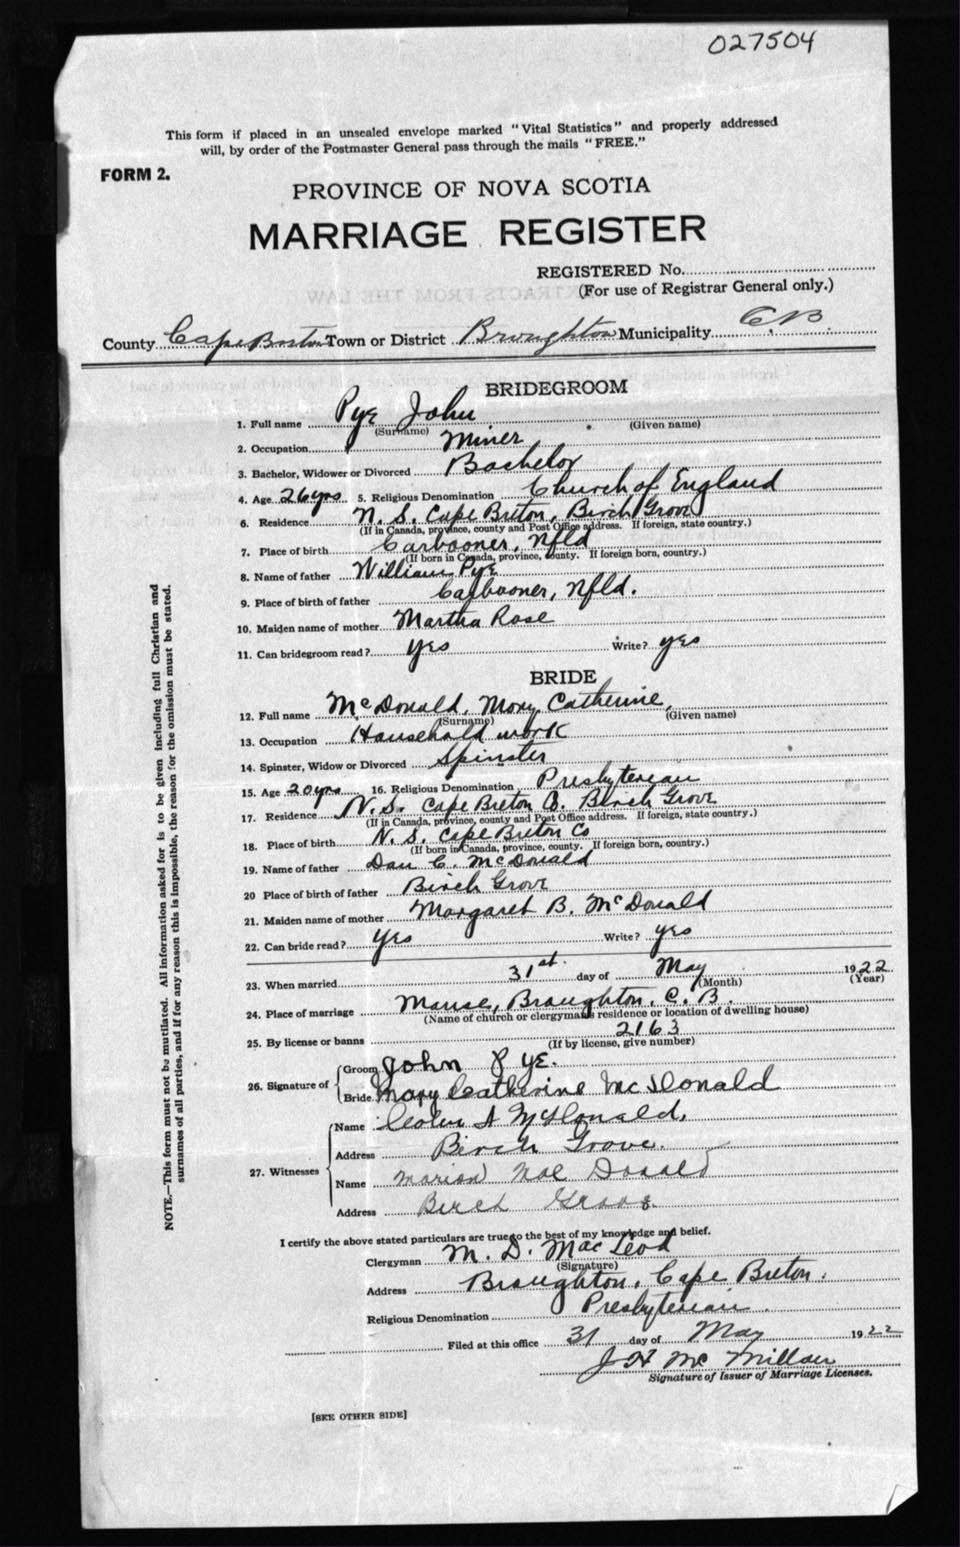 027504
This form if placed in an unsealed envelope marked "Vital Statistics" and properly addressed
will, by order of the Postmaster General pass through the mails "FREE."
FORM 2.
PROVINCE OF NOVA SCOTIA
MARRIAGE REGISTER
REGISTERED No.
(For use of Registrar General only.)
County Cape Breton Town or District Broughton Municipality CB
BRIDEGROOM
1. Full name Pye John
(Surname) (Given name)
2. Occupation Miner
3. Bachelor, Widower or Divorced Bachelor
4. Age 26 yrs 5. Religious Denomination Church of England
6. Residence N. S. Cape Breton, Birch Grove
(If in Canada, province, county and Post Office address. If foreign, state country.)
7. Place of birth Carbooner, Nfld
(If born in Canada, province, county. If foreign born, country.)
8. Name of father William Pye
9. Place of birth of father Carbooner, Nfld.
10. Maiden name of mother Martha Rose
11. Can bridegroom read? yes Write? yes
BRIDE
12. Full name McDonald, Mary Catherine
(Surname) (Given name)
13. Occupation Household work
14. Spinster, Widow or Divorced Spinster
15. Age 20 yrs 16. Religious Denomination Presbyterian
17. Residence N. S. Cape Breton Co. Birch Grove
(If in Canada, province, county and Post Office address. If foreign, state country.)
18. Place of birth N. S. Cape Breton Co
(If born in Canada, province, county. If foreign born, country.)
19. Name of father Dan C. McDonald
20 Place of birth of father Birch Grove
21. Maiden name of mother Margaret B. McDonald
22. Can bride read? yes Write? yes
23. When married 31st. day of May 1922
(Month) (Year)
24. Place of marriage Manse, Broughton, C. B.
(Name of church or clergyman's residence or location of dwelling house)
25. By license or banns 2163
(If by license, give number)
26. Signature of Groom John Pye.
Bride Mary Catherine McDonald
27. Witnesses Name A McDonald,
Address Birch Grove.
Name Marion Donald
Address Birch
I certify the above stated particulars are true to the best of my knowledge and belief.
Clergyman M. D. MacLeod
(Signature)
Address Broughton, Cape Breton.
Religious Denomination Presbyterian.
Filed at this office 31 day of May 1922
J H McMillan
Signature of Issuer of Marriage Licenses.
[SEE OTHER SIDE]
NOTE.—This form must not be mutilated. All information asked for is to be given including full Christian and
surnames of all parties, and if for any reason this is impossible, the reason for the omission must be stated.